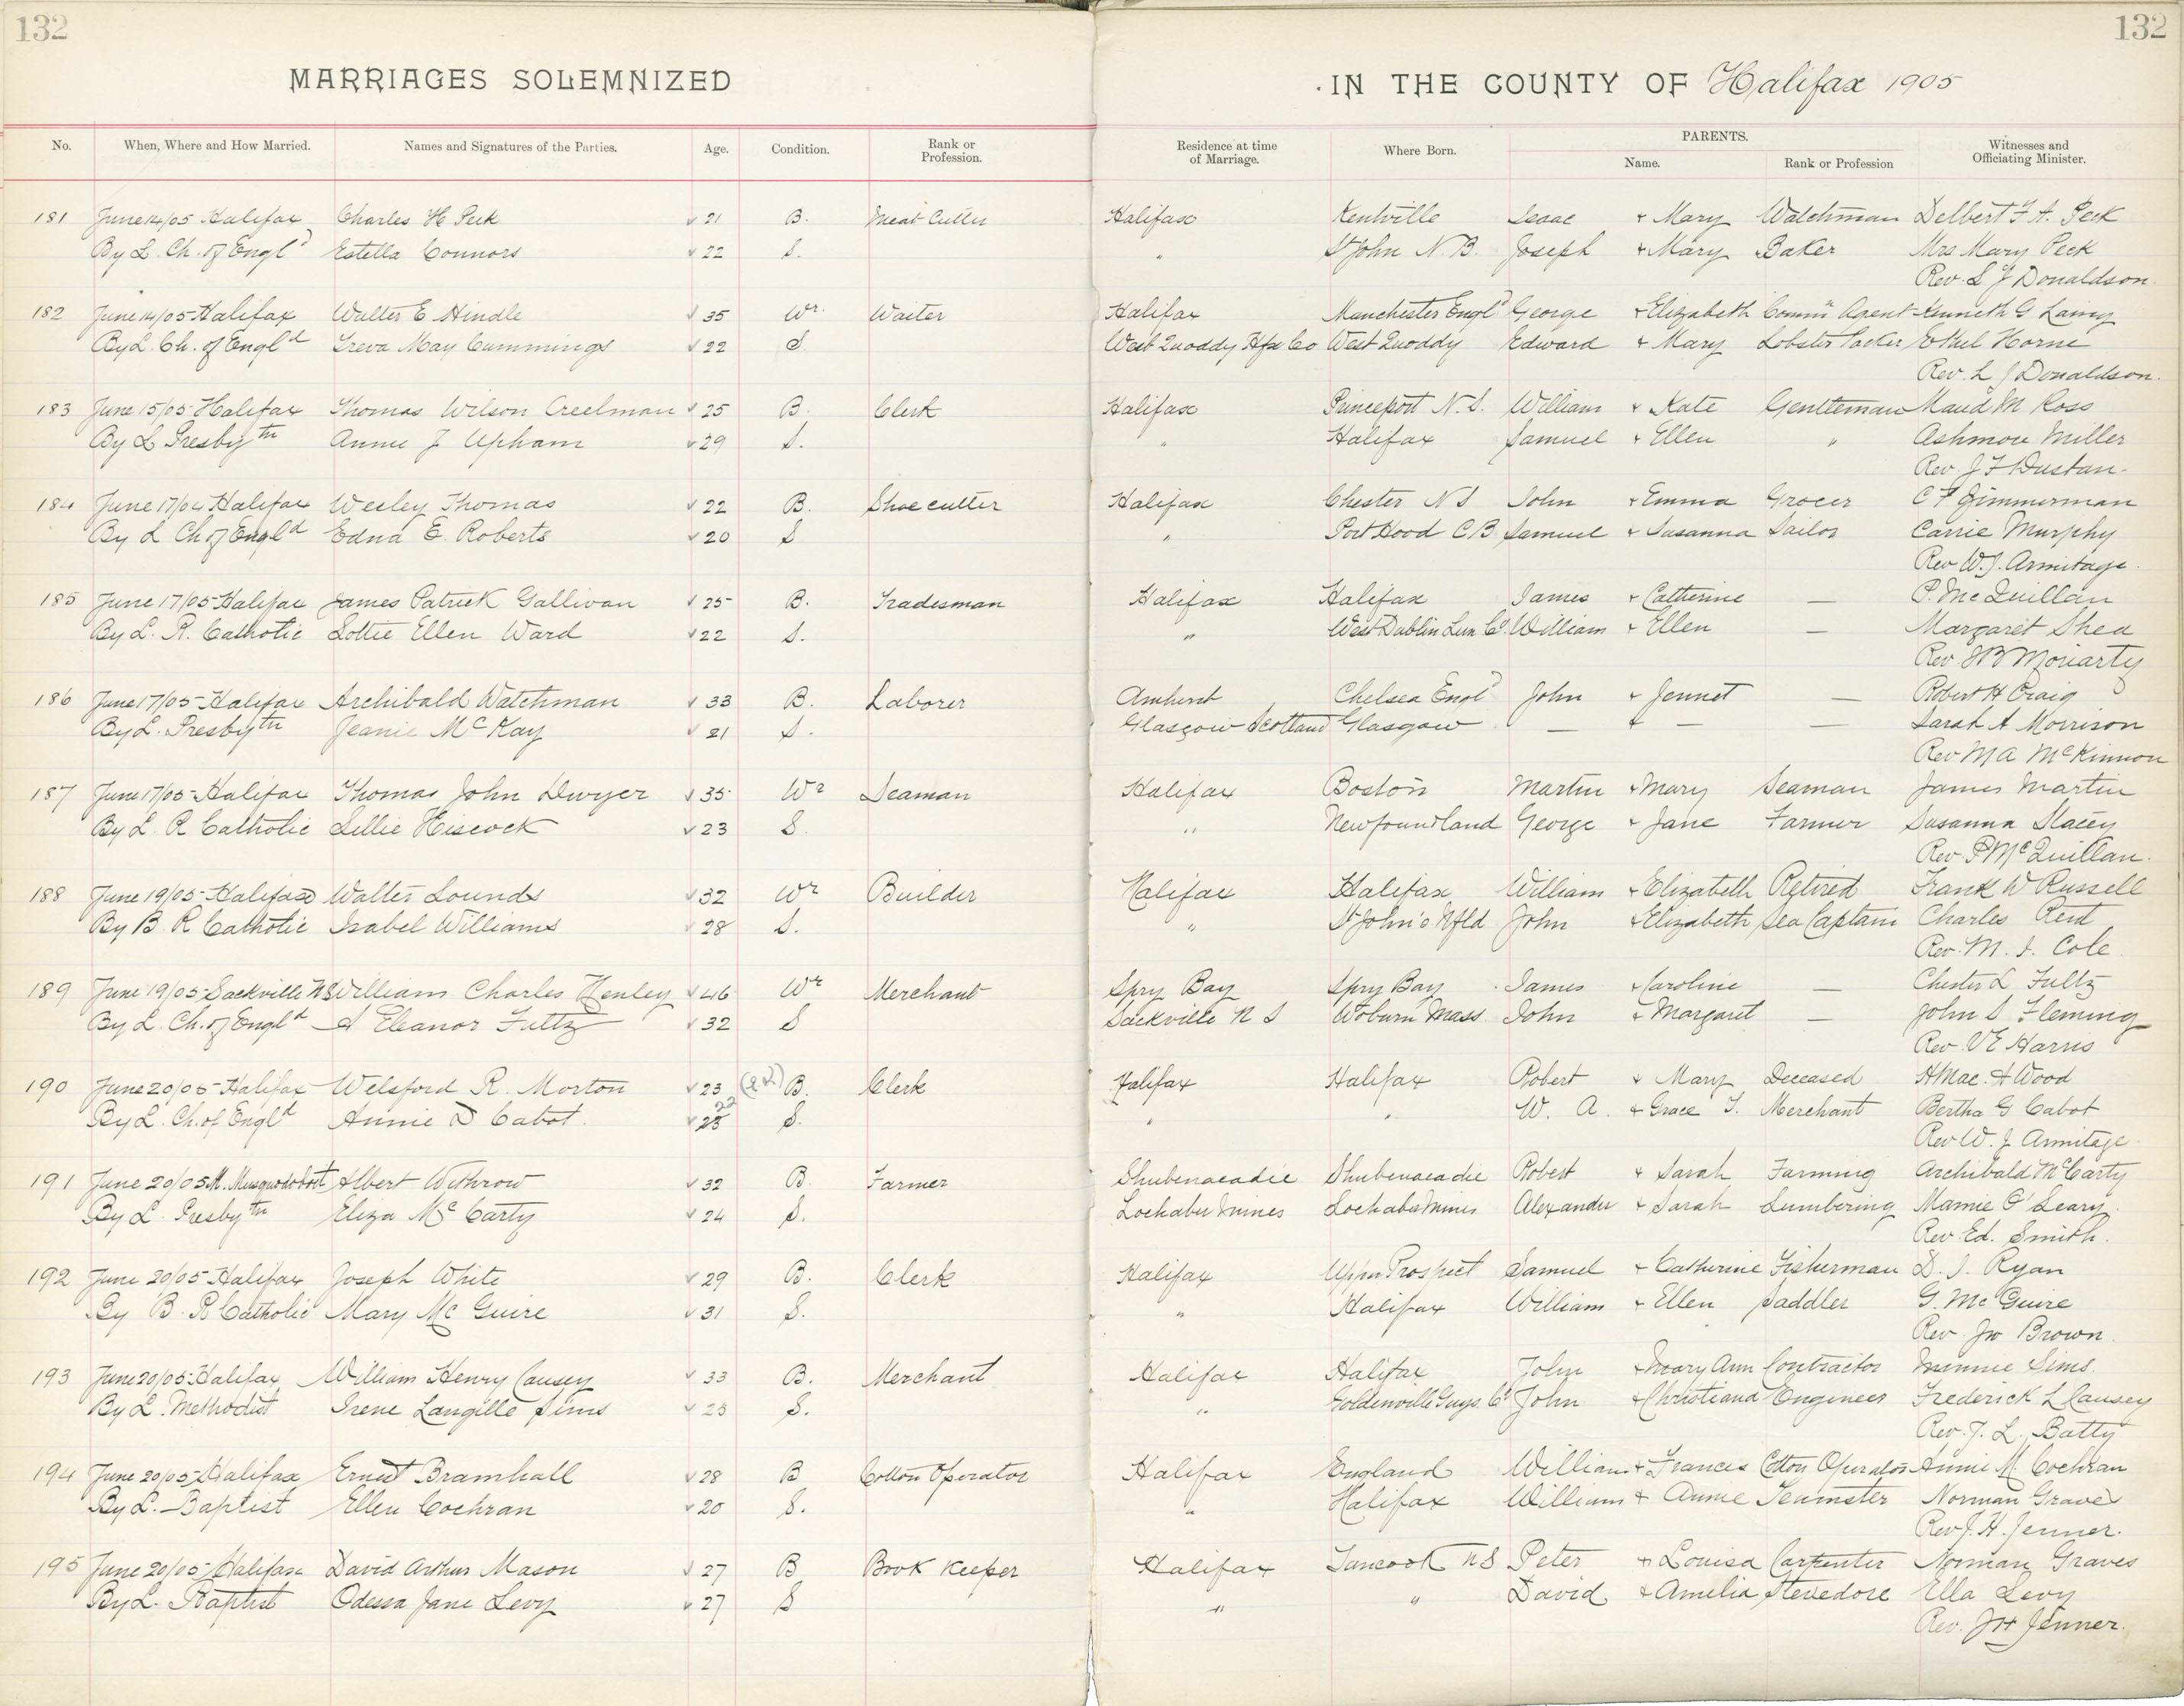 132
132
MARRIAGES SOLEMNIZED
IN THE COUNTY OF Halifax 1905
No. When, Where and How Married. Names and Signatures of the Parties. Age. Condition. Rank or Profession. Residence at time of Marriage. Where Born. PARENTS. Name. Rank or Profession Witnesses and Officiating Minister.
181 June 14/05 Halifax Charles H Peck 21 B. Meat Cutter Halifax Kentville Isaac + Mary Watchman Delbert F A. Peck
By L. Ch. of Engld Estella Connors 22 S. " St John N.B. Joseph + Mary Baker Mrs Mary Peck
Rev. L J Donaldson
182 June 14/05 Halifax Walter E Hindle 35 Wr. Waiter Halifax Manchester Engld George + Elizabeth Commn Agent Kenneth G Laing
By L. Ch. of Engld Treva May Cummings 22 S West Quoddy Hfx Co West Quoddy Edward + Mary Lobster Packer Ethel Horne
Rev. L J Donaldson.
183 June 15/05 Halifax Thomas Wilson Creelman 25 B. Clerk Halifax Princeport N.S. William + Kate Gentleman Maud M Ross
By L Presbytn Annie J Upham 29 S. " Halifax Samuel + Ellen " Ashmore Miller
Rev. J F Dustan.
184 June 17/04 Halifax Wesley Thomas 22 B. Shoe cutter Halifax Chester N S John + Emma Grocer C F Zimmerman
By L Ch of Engld Edna E. Roberts 20 S " Port Hood C B Samuel + Susanna Sailor Carrie Murphy
Rev W. J. Armitage.
185 June 17/05 Halifax James Patrick Gallivan 25 B. Tradesman Halifax Halifax James + Catherine — P. McQuillan
By L. R. Catholic Lottie Ellen Ward 22 S. " West Dublin Lun Co. William + Ellen — Margaret Shea
Rev J B Moriarty
186 June 17/05 Halifax Archibald Watchman 33 B. Laborer Amherst Chelsea Engld John + Jennet — Robert H Craig
By L. Presbytn Jeanie McKay 21 S. Glasgow Scotland Glasgow — + — — Sarah A Morrison
Rev M A McKinnon
187 June 17/05 Halifax Thomas John Dwyer 35 Wr Seaman Halifax Boston Martin + Mary Seaman James Martin
By L. R Catholic Lillie Hiscock 23 S. " Newfoundland George + Jane Farmer Susanna Stacey
Rev. P McQuillan.
188 June 19/05 Halifax Walter Lounds 32 Wr Builder Halifax Halifax William + Elizabeth Retired Frank W Russell
By B. R Catholic Isabel Williams 28 S. " St John's Nfld John + Elizabeth Sea Captain Charles Rent
Rev. M. J. Cole
189 June 19/05 Sackville NS William Charles Henley 46 Wr Merchant Spry Bay Spry Bay James + Caroline — Chester L Fultz
By L. Ch. of Engld A Eleanor Fultz 32 S Sackville N S Woburn Mass John + Margaret — John S Fleming
Rev. V E Harris
190 June 20/05 Halifax Welsford R. Morton 23 (22) B. Clerk Halifax Halifax Robert + Mary Deceased H Mac. A Wood
By L. Ch. of Engld Annie D Cabot. 22 25 S. " " W. A. + Grace T. Merchant Bertha G Cabot
Rev W. J Armitage
191 June 20/05 M. Musquodoboit Albert Withrow 32 B. Farmer Shubenacadie Shubenacadie Robert + Sarah Farming Archibald McCarty
By L. Presbytn Eliza McCarty 24 S. Lochaber Mines Lochaber Mines Alexander + Sarah Lumbering Mamie O'Leary
Rev. Ed. Smith.
192 June 20/05 Halifax Joseph White 29 B. Clerk Halifax Upper Prospect Samuel + Catherine Fisherman D. J. Ryan
By B. R Catholic Mary McGuire 31 S. " Halifax William + Ellen Saddler G. McGuire
Rev. Jno Brown
193 June 20/05 Halifax William Henry Causey 33 B. Merchant Halifax Halifax John + Mary Ann Contractor Minnie Sims
By L. Methodist Irene Langille Sims 23 S. " Goldenville Guys. Co. John + Christiana Engineer Frederick L Causey
Rev. J. L. Batty
194 June 20/05 Halifax Ernest Bramhall 28 B Cotton Operator Halifax England William + Frances Cotton Operator Annie M Cochran
By L. Baptist Ellen Cochran 20 S. " Halifax William + Annie Teamster Norman Graves
Rev J. H. Jenner.
195 June 20/05 Halifax David Arthur Mason 27 B Book Keeper Halifax Tancook NS Peter + Louisa Carpenter Norman Graves
By L. Baptist Odessa Jane Levy 27 S " " David + Amelia Stevedore Ella Levy
Rev. J H Jenner.